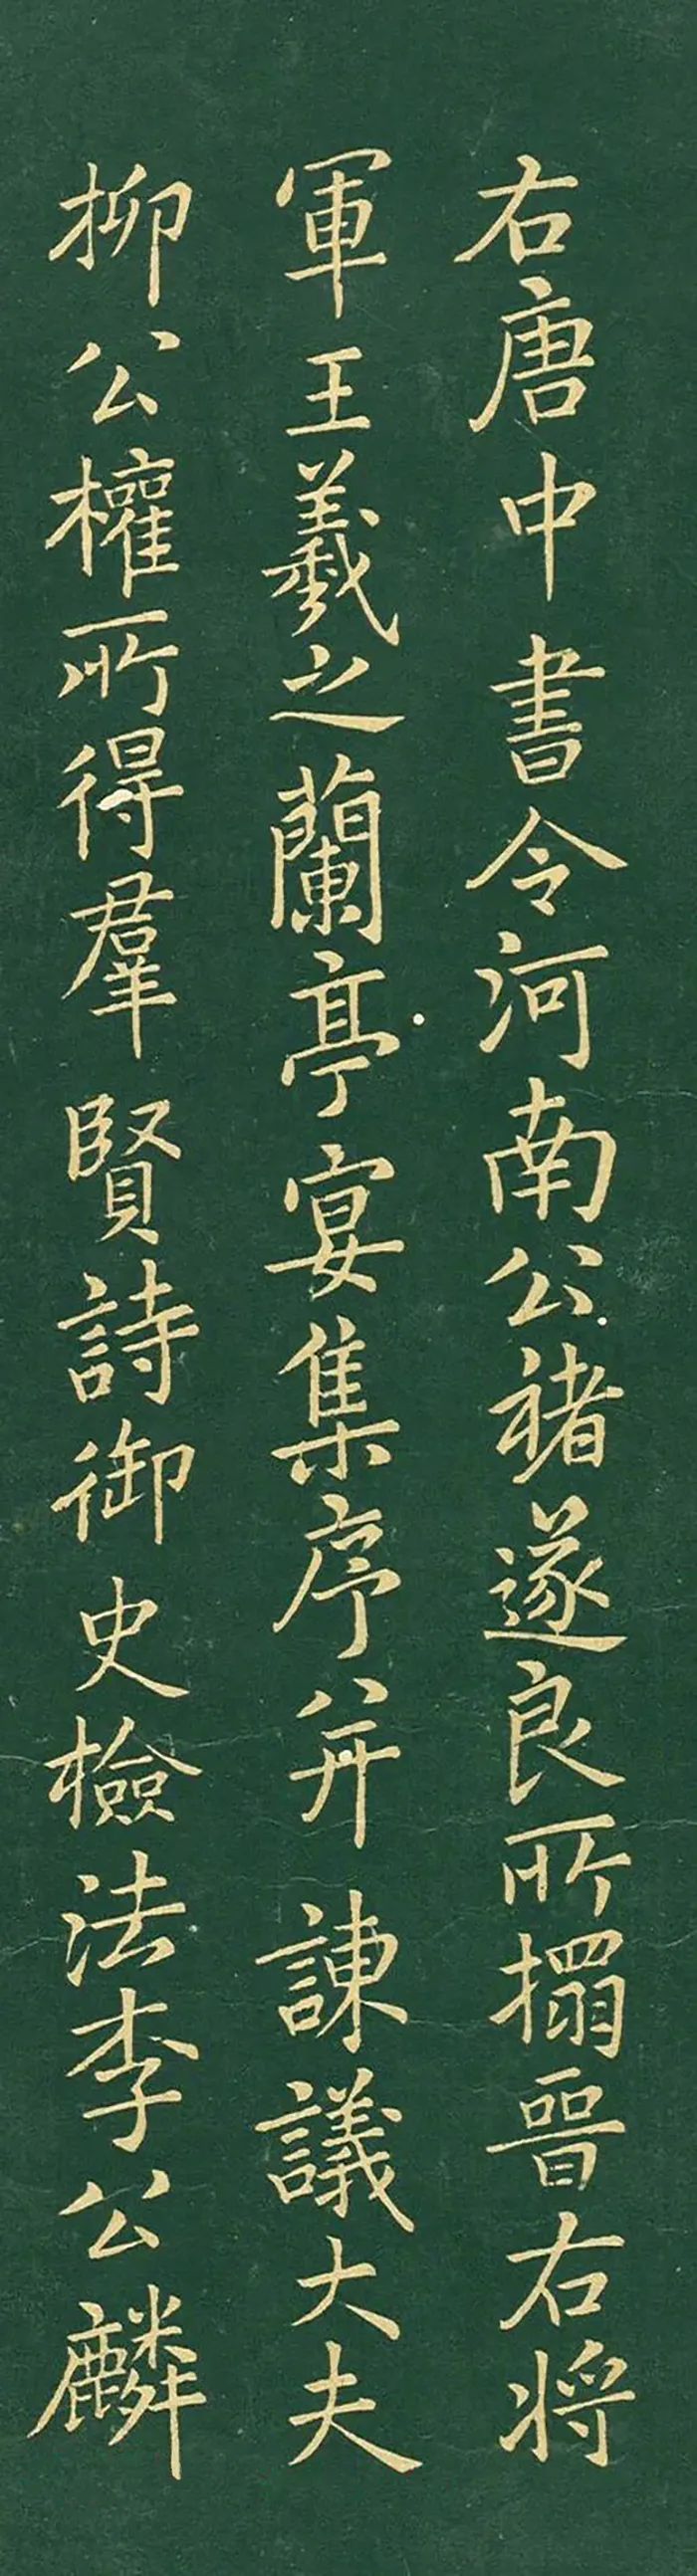 右唐中書令河南公褚遂良所搨晉右将
軍王羲之蘭亭宴集序并諌議大夫
柳公權所得羣賢詩御史檢法李公麟